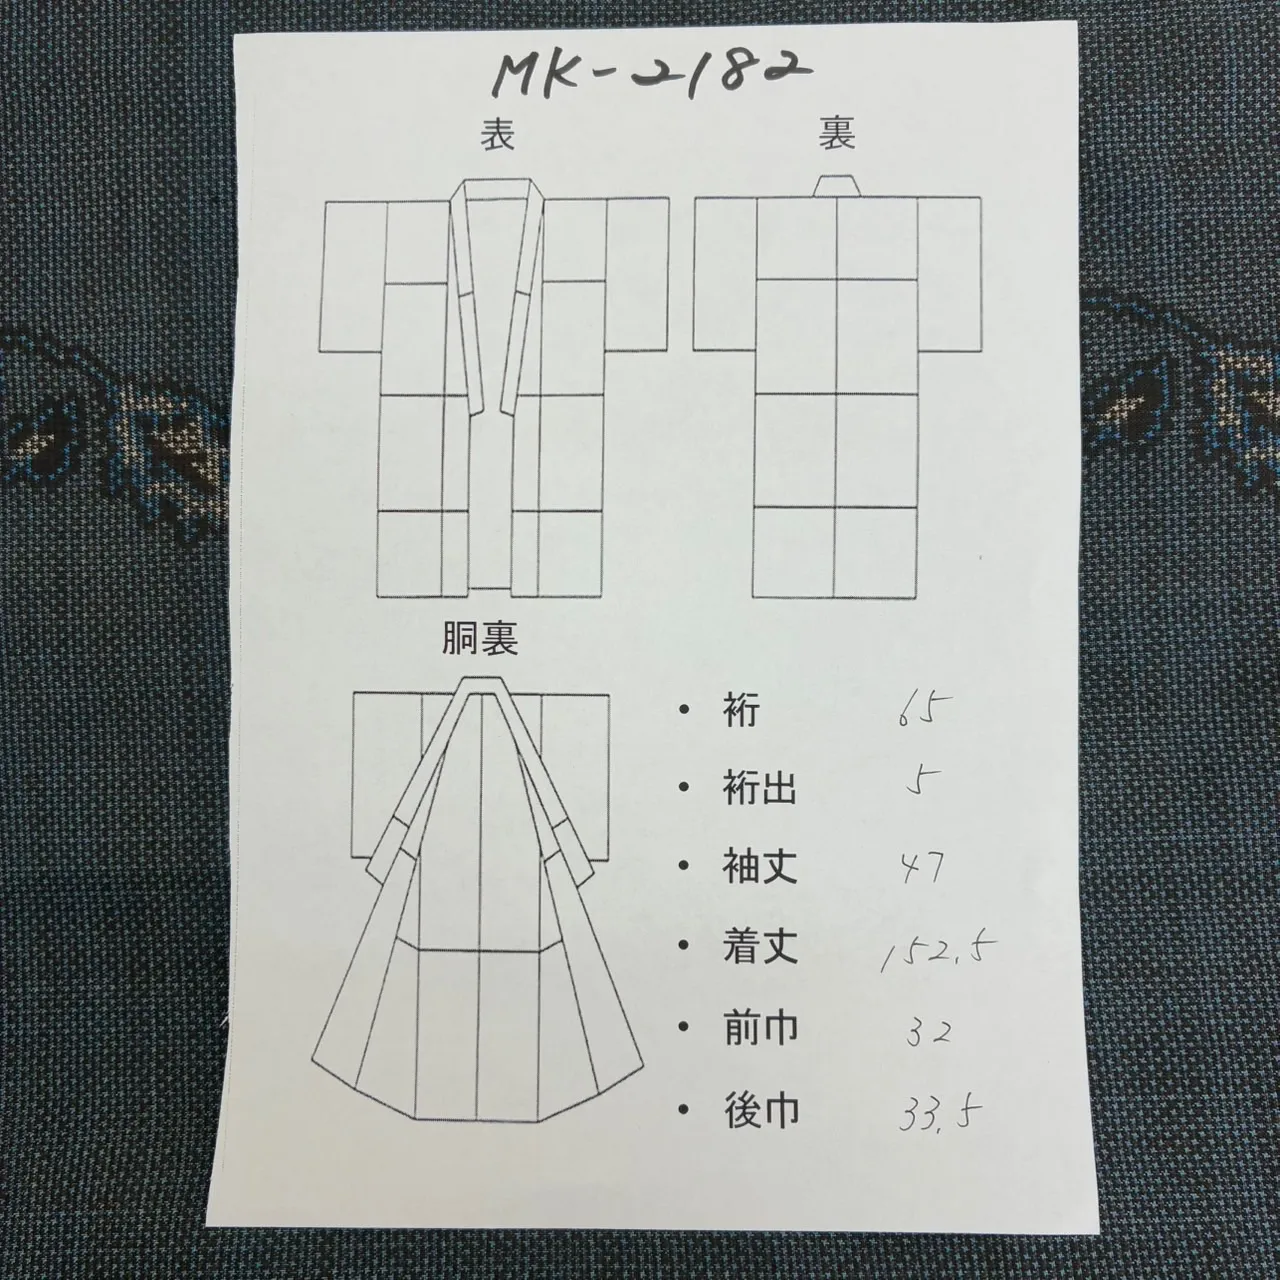 MK-2182
表 裏
胴裏
・ 裄 65
・ 裄出 5
・ 袖丈 47
・ 着丈 152.5
・ 前巾 32
・ 後巾 33.5